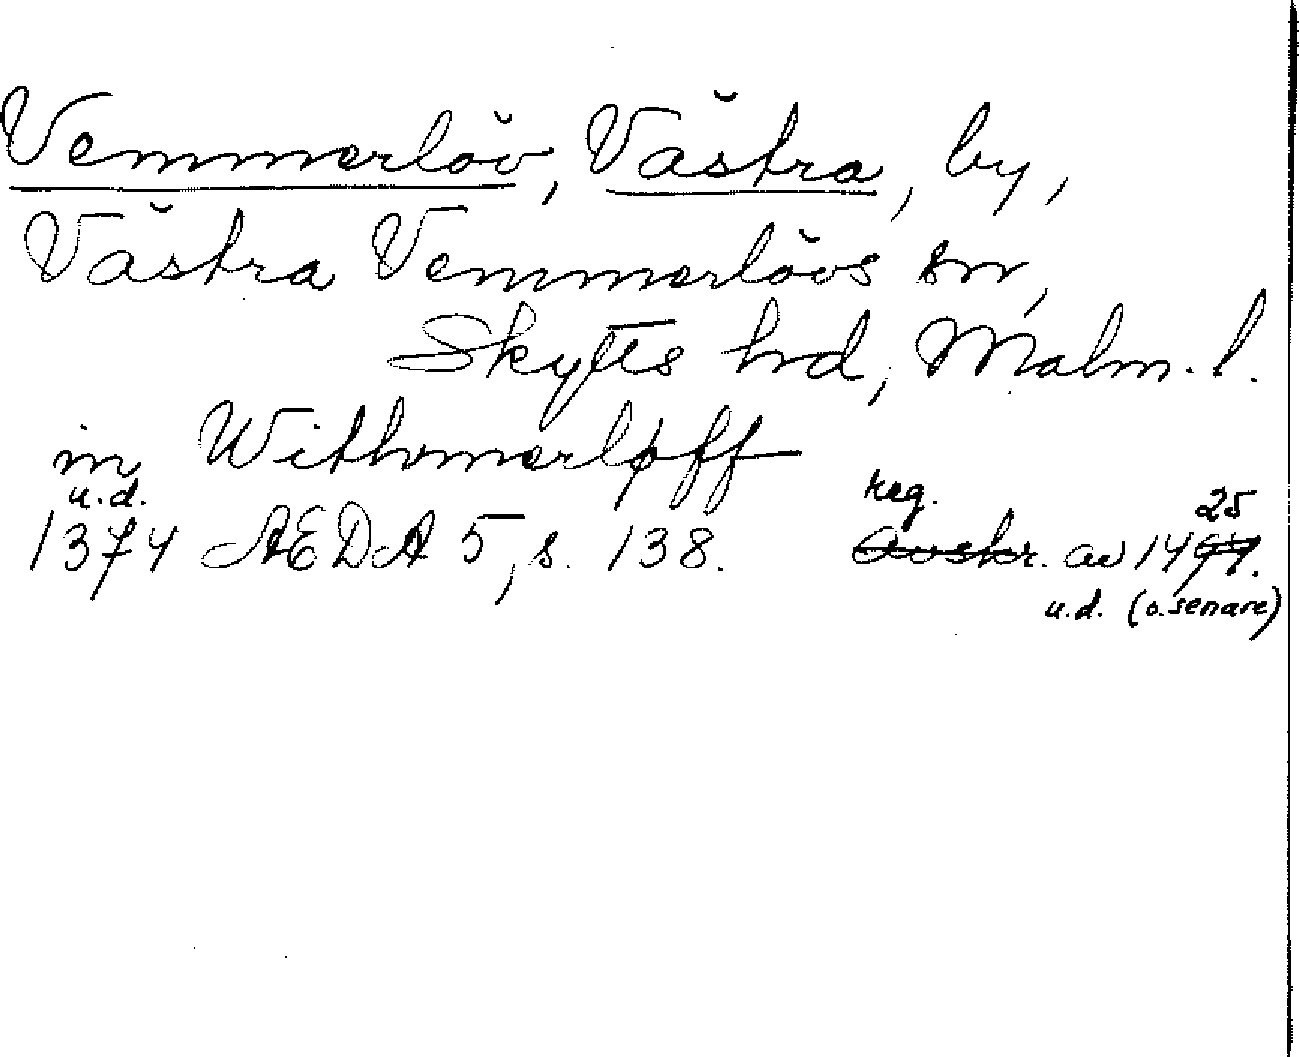 Vemmerlöv, Västra, by,
Västra Vemmerlövs sn,
Skytts hd, Malm. l.
in Withmerløff
u.d. reg. 25
1374 ÆDA 5, s. 138. Avskr. av 1494.
u.d. (o. senare)